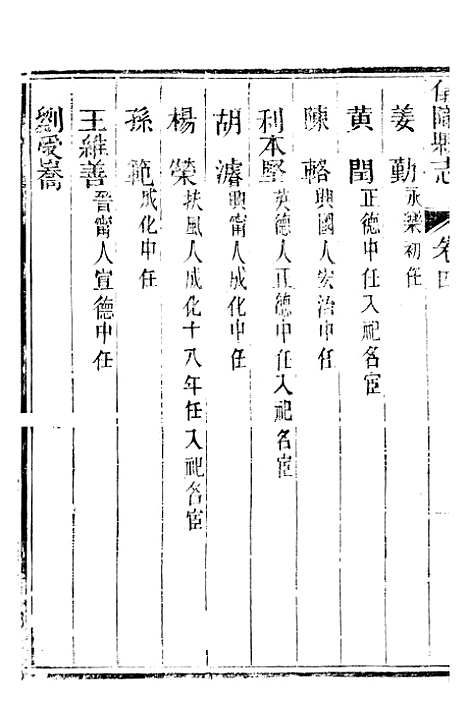 儀隴縣志 卷四
姜勤 永樂初任
黄閏 正德中任入祀名宦
陳輅 興國人宏治中任
利本堅 英德人正德中任入祀名宦
胡濬 興甯人成化中任
楊榮 扶風人成化十八年任入祀名宦
孫範 成化中任
王維善 晉甯人宣德中任
劉愛喬